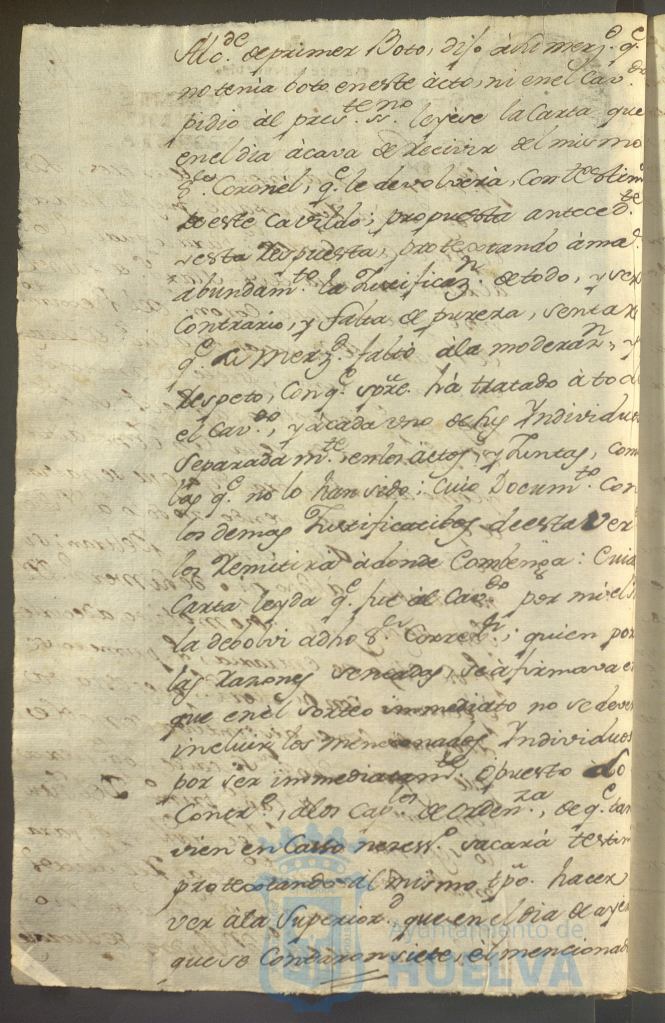 Alc.de de primer Boto, dijo à su merz.d q.e
no tenia boto en este àcto, ni en el Cav.do
pidio àl pres.te ss.no leyese la Carta que
en el dia àcava de Recivir del mismo
S.or Coronèl, q.e le devolverà, con testim
de este Cavildo, propuesta anteced.te
y esta Respuesta, protextando à ma.r
abundam.to la Justificaz.n de todo, y ser
Contrario, y falta de pureza, sentar
q.e su Merz.d faltò àla moderaz.n, y
Respeto, con q.e spre. hà tratado à todo
el Cav.do, y à cada uno de sus Individuos
separadam.te, en los àctos, y Juntas, como
las q.e no lo han sido; Cuio Docum.to con
los demas Justificatibos de esta Ver
los Remitirà àdonde Combenga: Cuia
Carta leyda q.e fue àl Cav.do por mi el
la debolvì adho S.or Corren.l; quien por
las Razones sentadas, se àfirmava en
que en el sorteo immediato no se deven
incluir los mencionados Individuos
por sèr immediatam.te òpuesto lo
Contr.o, àlos Cav.os de Orden.za, de q.e tan
vien en Casso neress.o sacarà testim
protextando àl mismo tpo. hacer
ver àla Superior.d que en el dia de ayer
que se Contaron siete, el mencionado
Ayuntamiento de
HUELVA